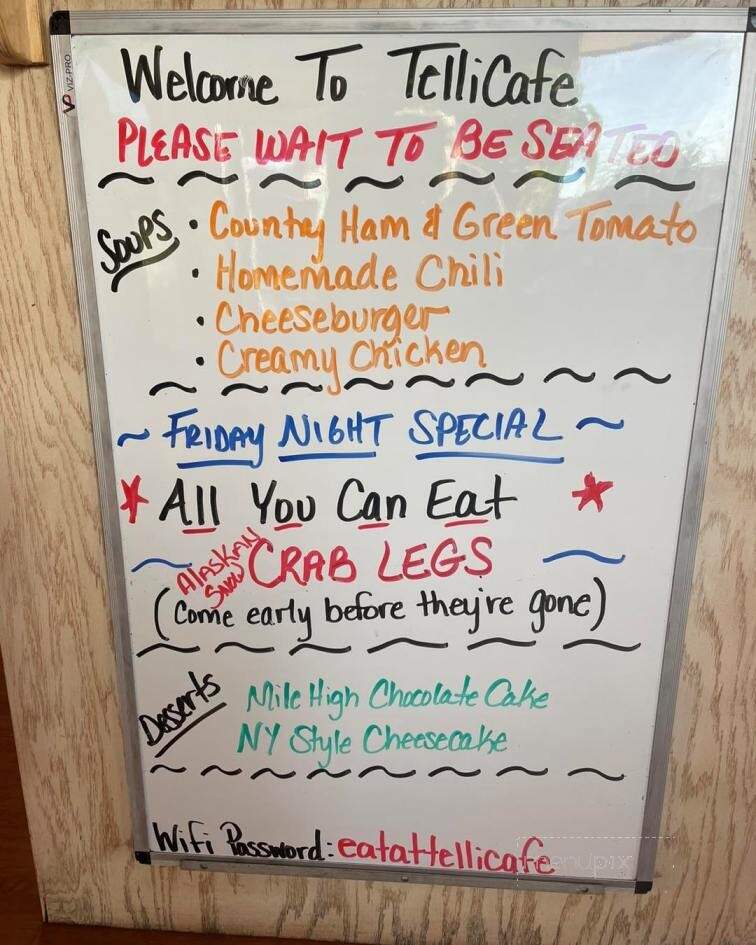 VP VIZ-PRO
Welcome To TelliCafe
PLEASE WAIT TO BE SEATED
Soups
• Country Ham & Green Tomato
• Homemade Chili
• Cheeseburger
• Creamy Chicken
~ FRIDAY NIGHT SPECIAL ~
* All You Can Eat *
ALASKAN Snow CRAB LEGS
(Come early before they're gone)
Desserts
Mile High Chocolate Cake
NY Style Cheesecake
Wifi Password: eatattellicafe
menupix